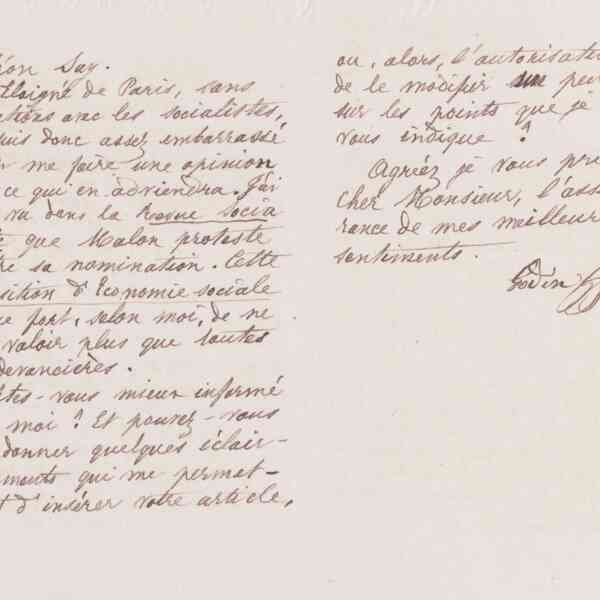 éon Say.
Éloigné de Paris, sans
ations avec les socialistes,
uis donc assez embarrassé
r me faire une opinion
ce qui en adviendra. J'ai
vu dans la Revue Socia
e que Malon proteste
re sa nomination. Cette
sition d'Economie sociale
ue fort, selon moi, de ne
valoir plus que toutes
devancières.
tes-vous mieux informé
moi ? Et pouvez-vous
donner quelques éclair-
ements qui me permet-
t d'insérer votre article,
ou, alors, l'autorisati
de le modifier un peu
sur les points que je
vous indique ?
Agréez je vous prie
cher Monsieur, l'assu
rance de mes meilleur
sentiments.
Godin